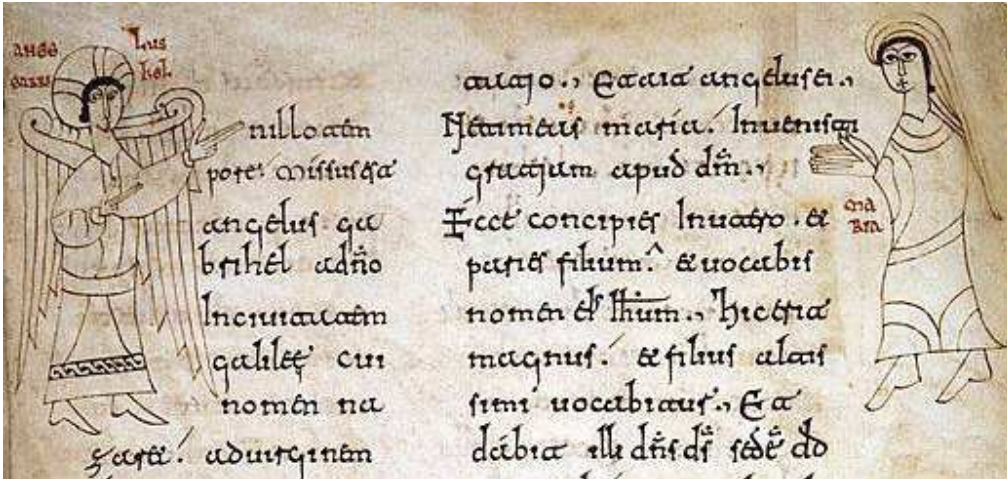 ANGE LUS
GABRI HEL
n illo tem
pore: Missus est
angelus ga
brihel a dño
In civitatem
galileę cui
nomen na
zaret: ad virginem
tatio., Et ait angelus ei.,
Ne timeas maria: Invenisti
gratiam apud dñm.,
Ecce concipies In utero. et
paries filium: et vocabis
nomen eis Ihum., hic erit
magnus: et filius altis
simi vocabitur., Et
dabit illi dñs ds sedē dd
MA
RIA